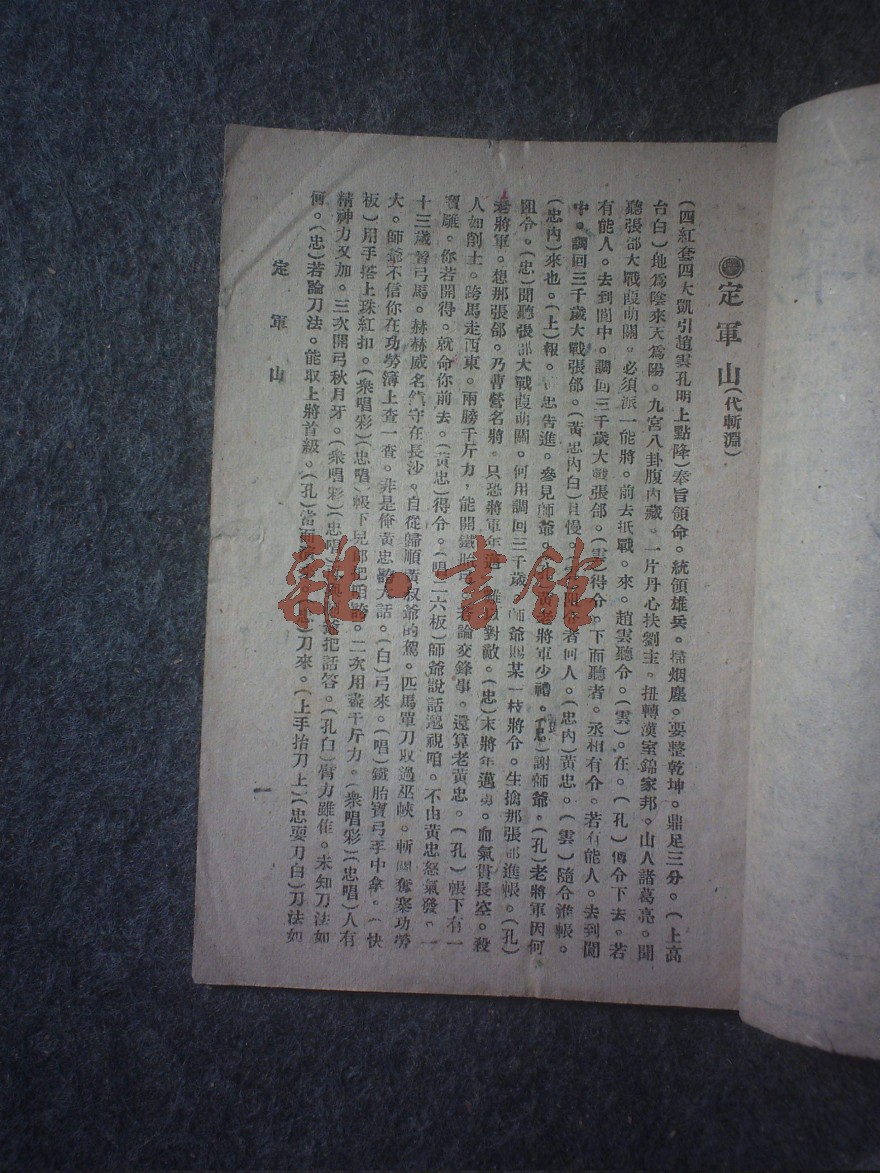 定軍山(代斬淵)
(四紅套四大凱引趙雲孔明上點降)奉旨領命。統領雄兵。掃烟塵。要整乾坤。鼎足三分。(上高
台白)地爲陰來天爲陽。九宮八卦腹內藏。一片丹心扶劉主。扭轉漢室錦家邦。山人諸葛亮。聞
聽張郃大戰葭萌關。必須派一能將。前去抵戰。來。趙雲聽令。(雲)。在。(孔)傳令下去。若
有能人。去到閬中。調回三千歲大戰張郃。(雲)得令。下面聽者。丞相有令。若有能人。去到閬
中。調回三千歲大戰張郃。(黃忠內白)且慢。令者何人。(忠內)黃忠。(雲)隨令進帳。
(忠內)來也。(上)報。忠告進。參見師爺。老將軍少禮。(忠)謝師爺。(孔)老將軍因何
阻令。(忠)聞聽張郃大戰葭萌關。何用調回三千歲。師爺賜某一枝將令。生擒那張郃進帳。(孔)
老將軍。想那張郃。乃曹營名將。只恐將軍年邁。難以對敵。(忠)末將年邁勇。血氣貫長空。殺
人如削土。跨馬走西東。兩膀千斤力。能開鐵胎弓。若論交鋒事。還算老黃忠。(孔)帳下有一
寶雕。你若開得。就命你前去。(黃忠)得令。(唱二六板)師爺說話藐視咱。不由黃忠怒氣發。一
十三歲習弓馬。赫赫威名鎮守在長沙。自從歸順黃叔爺的駕。匹馬單刀取過巫峽。斬關奪寨功勞
大。師爺不信你在功勞簿上查一查。非是俺黃忠誇大話。(白)弓來。(唱)鐵胎寶弓手中拿。(快
板)用手搭上珠紅扣。(衆唱彩)(忠唱)帳下兒郎把咱誇。二次用盡千斤力。(衆唱彩)(忠唱)人有
精神力又加。三次開弓秋月牙。(衆唱彩)(忠唱)爺把話答。(孔白)臂力雖隹。未知刀法如
何。(忠)若論刀法。能取上將首級。(孔)當面刀來。(上手抬刀上)(忠耍刀白)刀法如
定軍山
一
雜·書館